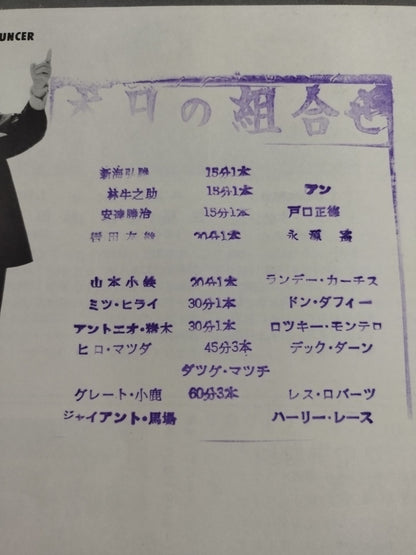 UNCER
本日の組合せ
新海弘勝 15分1本
林牛之助 15分1本 アン
安達勝治 15分1本 戸口正徳
20分1本 永源遙
山本小鉄 20分1本 ランデー・カーチス
ミツ・ヒライ 30分1本 ドン・ダフィー
アントニオ・猪木 30分1本 ロツキー・モンテロ
ヒロ・マツダ 45分3本 デック・ダーン
ダツグ・マツチ
グレート・小鹿 60分3本 レス・ロバーツ
ジャイアント・馬場 ハーリー・レース